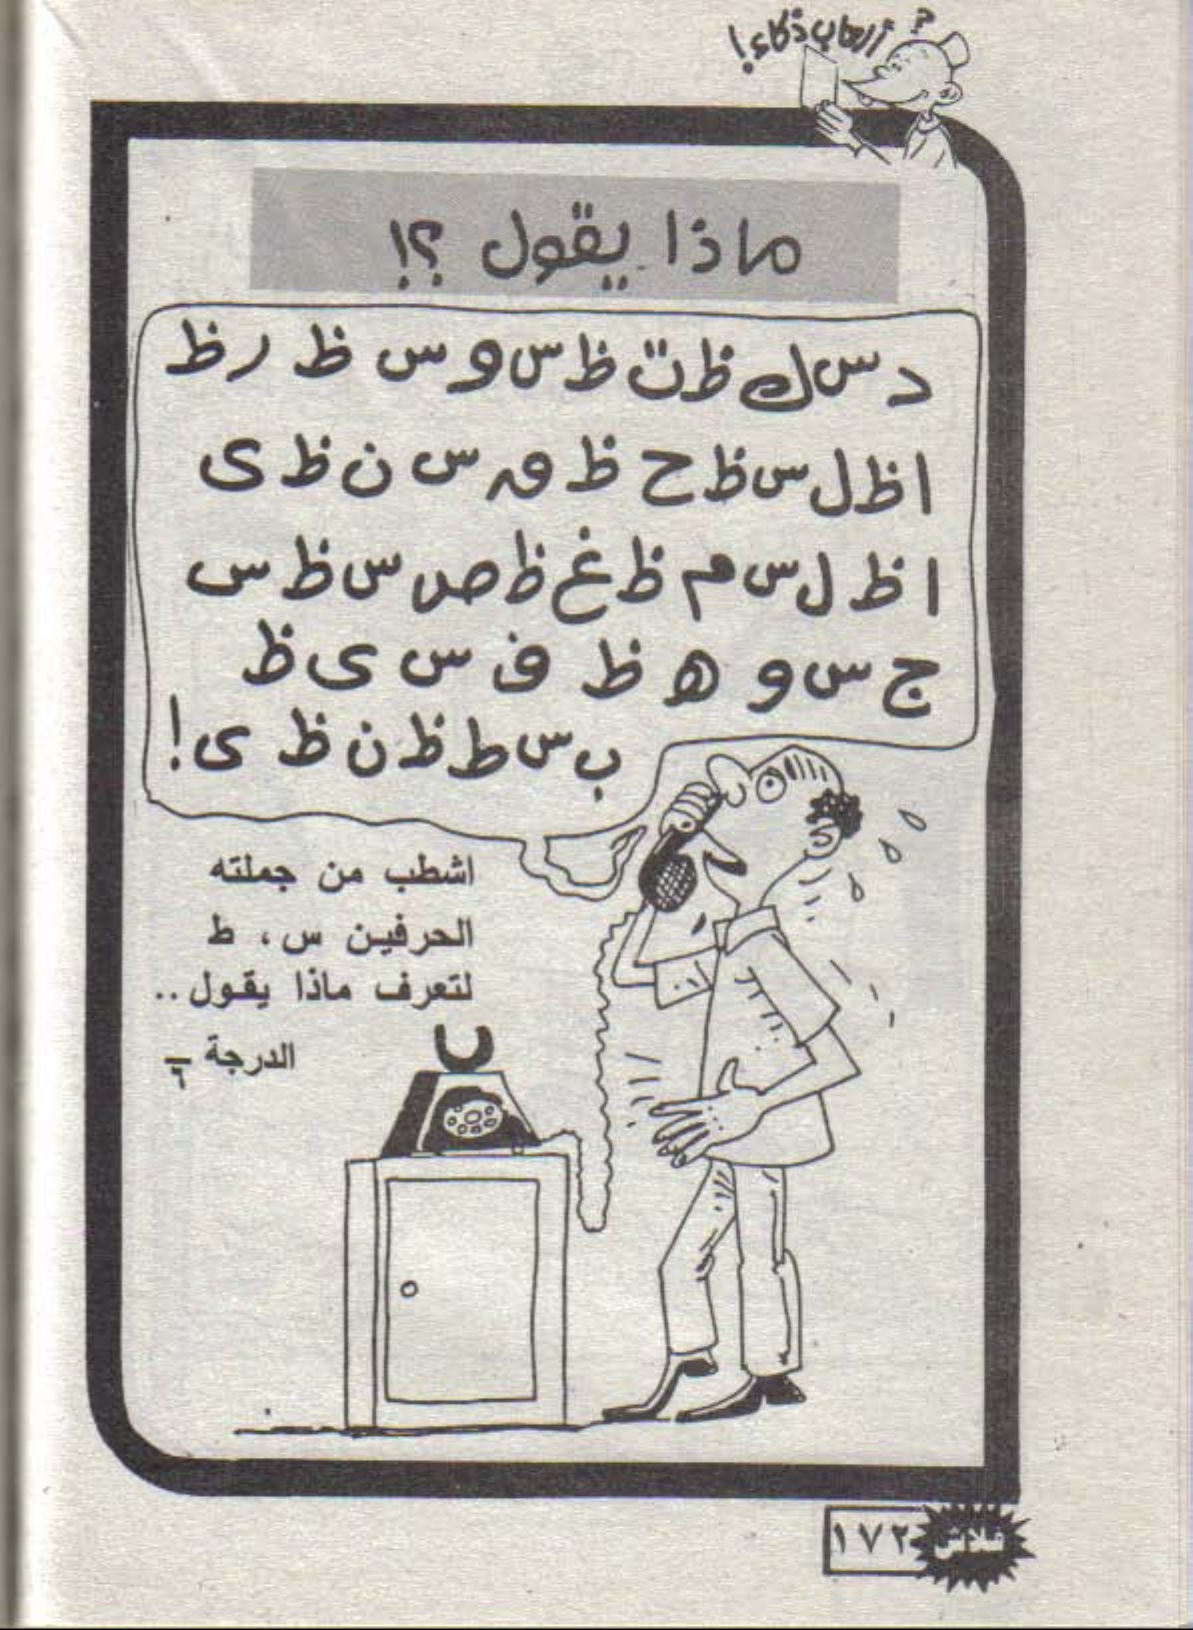 ألعاب ذكاء!
ماذا يقول ؟!
د س ك ظ ت ظ س و س ظ ر ظ
ا ظ ل س ظ ح ظ ق س ن ظ ى
ا ظ ل س م ظ غ ظ ص س ظ س
ج س و ه ظ ف س ى ظ
ب س ط ظ ن ظ ى !
اشطب من جملته
الحرفين س ، ط
لتعرف ماذا يقول ..
الدرجة ٦
فلاش
١٧٢